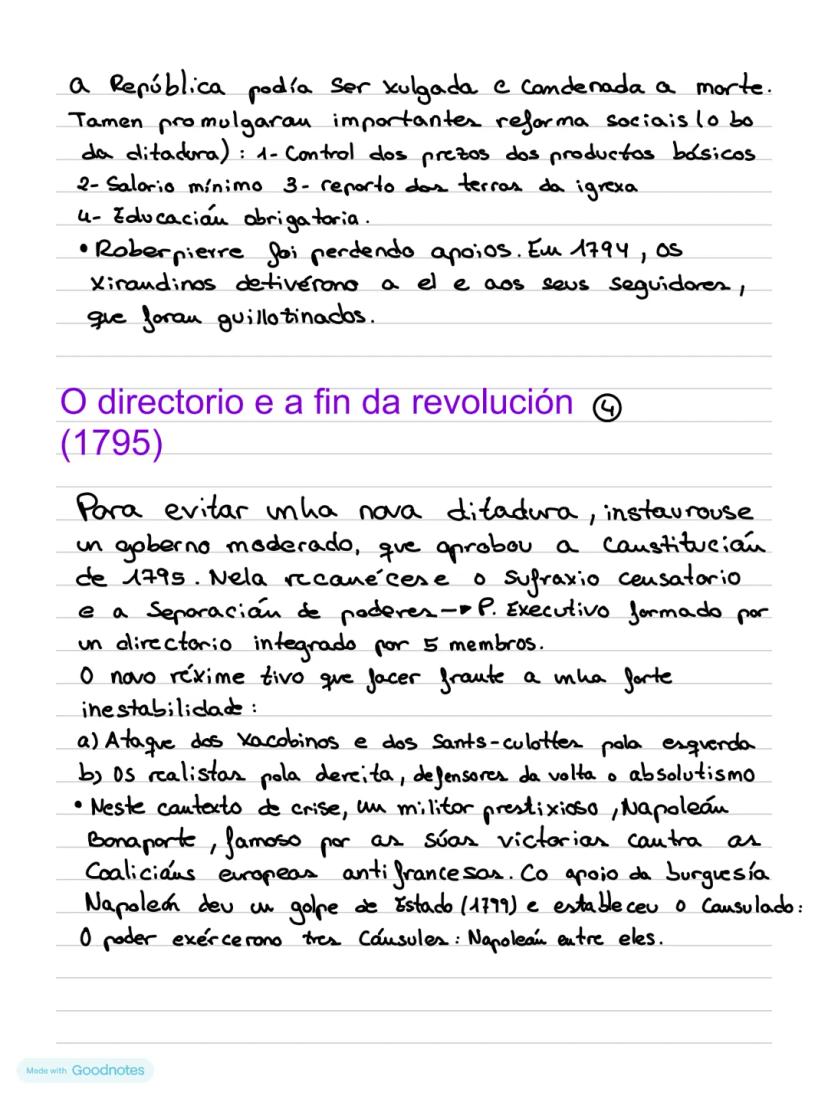 a República podía ser xulgada e condenada a morte.
Tamen promulgaran importantes reforma sociais (o bo
da ditadura): 1- Control dos prezos dos productos básicos
2- Salario mínimo 3- reporto das terras da igrexa
4- Educación obrigatoria.
• Roberpierre foi perdendo apoios. En 1794, os
xirondinos detivérono a el e aos seus seguidores,
que foran guillotinados.
O directorio e a fin da revolución ④
(1795)
Para evitar unha nova ditadura, instaurouse
un goberno moderado, que aprobou a Constitución
de 1795. Nela reconécese o sufraxio censatorio
e a separación de poderes → P. Executivo formado por
un directorio integrado por 5 membros.
O novo réxime tivo que facer fronte a unha forte
inestabilidade:
a) Ataque dos xacobinos e dos Sants-culottes pola esquerda
b) Os realistas pola dereita, defensores da volta o absolutismo
• Neste contexto de crise, un militar prestixioso, Napoleón
Bonaparte, famoso por as súas victorias contra as
Coalicións europeas antifrancesas. Co apoio da burguesía
Napoleón deu un golpe de Estado (1799) e estableceu o Consulado:
O poder exércerono tres Cónsules: Napoleón entre eles.
Made with Goodnotes